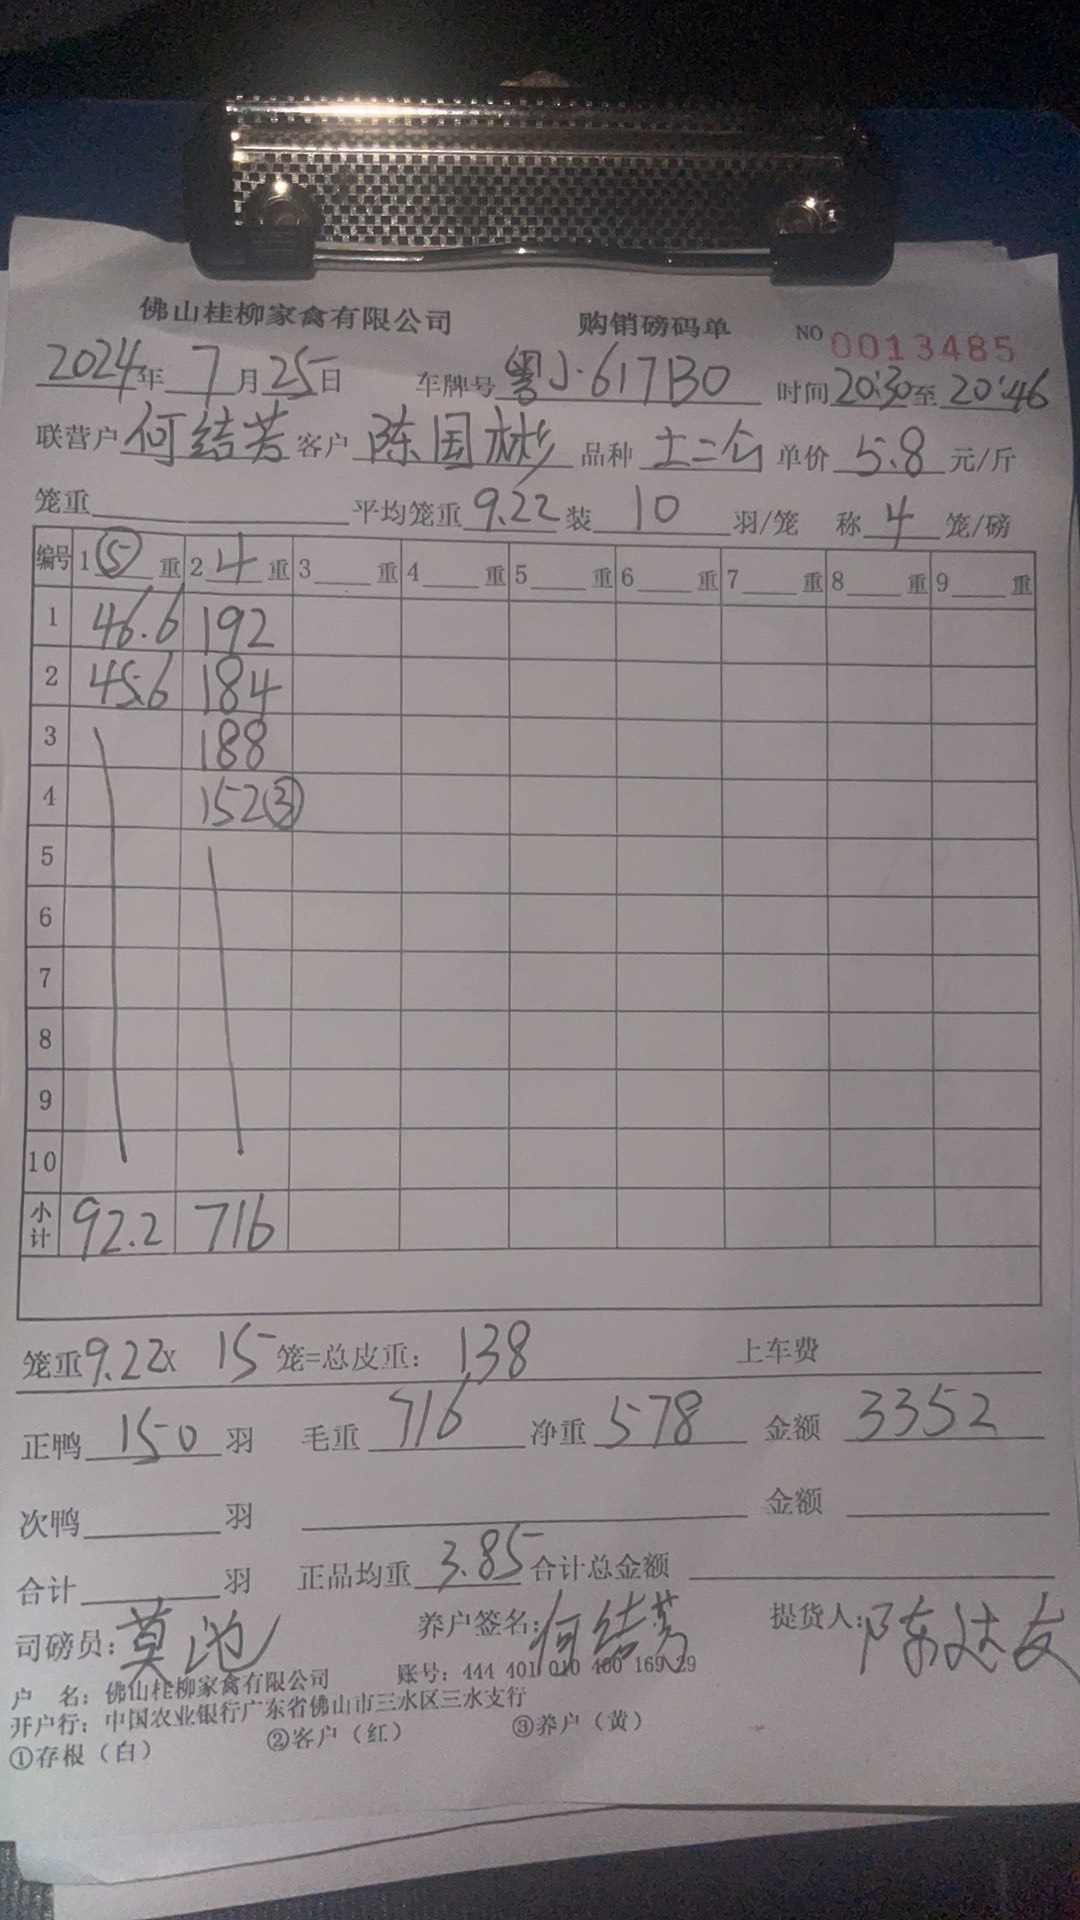 佛山桂柳家禽有限公司 购销磅码单 NO 0013485
2024年7月25日 车牌号粤J·617B0 时间20:30至20:46
联营户何结芳客户陈国彬品种土二公单价5.8元/斤
笼重 平均笼重9.22装10羽/笼 称4笼/磅
编号 1⑤重 2 4重 3重 4重 5重 6重 7重 8重 9重
1 46.6 192
2 45.6 184
3 188
4 152③
5
6
7
8
9
10
小计 92.2 716
笼重9.22X 15笼=总皮重:138 上车费
正鸭150羽 毛重716净重578 金额3352
次鸭羽 金额
合计羽 正品均重3.85合计总金额
司磅员:莫池 养户签名:何结芳 提货人:陈达友
户 名:佛山桂柳家禽有限公司 账号:444 401 010 400 169 29
开户行:中国农业银行广东省佛山市三水区三水支行
①存根(白) ②客户(红) ③养户(黄)